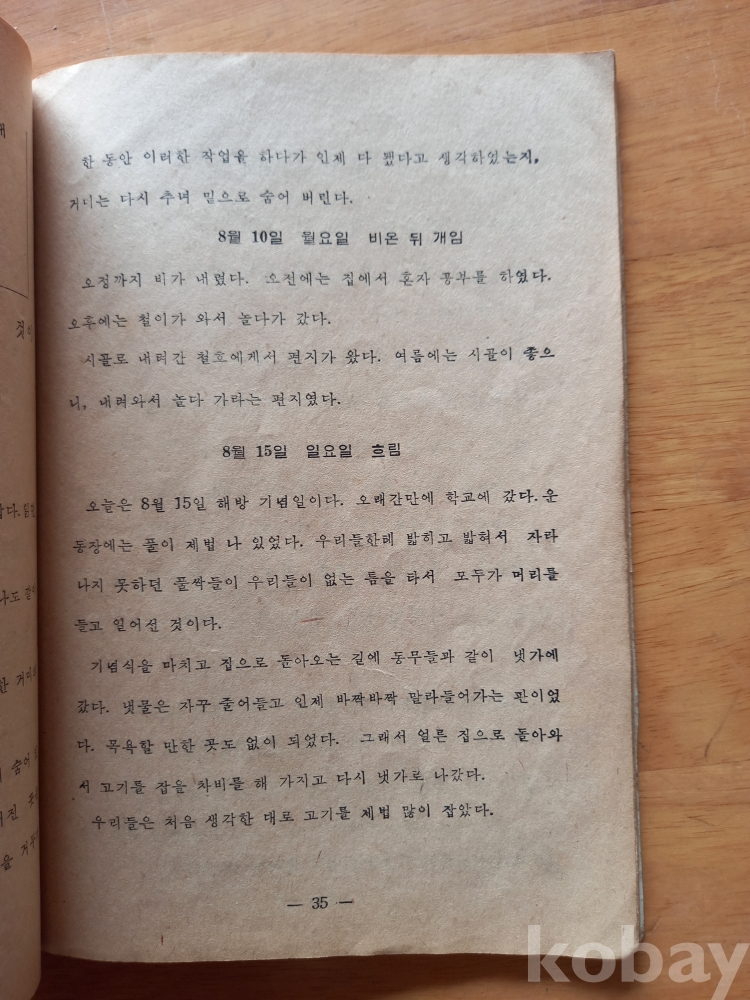 한 동안 이러한 작업을 하다가 인제 다 됐다고 생각하였는지,
거미는 다시 추녀 밑으로 숨어 버린다.
8월 10일 월요일 비온 뒤 개임
오정까지 비가 내렸다. 오전에는 집에서 혼자 공부를 하였다.
오후에는 철이가 와서 놀다가 갔다.
시골로 내려간 철호에게서 편지가 왔다. 여름에는 시골이 좋으
니, 내려와서 놀다 가라는 편지였다.
8월 15일 일요일 흐림
오늘은 8월 15일 해방 기념일이다. 오래간만에 학교에 갔다. 운
동장에는 풀이 제법 나 있었다. 우리들한테 밟히고 밟혀서 자라
나지 못하던 풀싹들이 우리들이 없는 틈을 타서 모두가 머리를
들고 일어선 것이다.
기념식을 마치고 집으로 돌아오는 길에 동무들과 같이 냇가에
갔다. 냇물은 자꾸 줄어들고 인제 바짝바짝 말라들어가는 판이었
다. 목욕할 만한 곳도 없이 되었다. 그래서 얼른 집으로 돌아와
서 고기를 잡을 차비를 해 가지고 다시 냇가로 나갔다.
우리들은 처음 생각한 대로 고기를 제법 많이 잡았다.
— 35 —
kobay